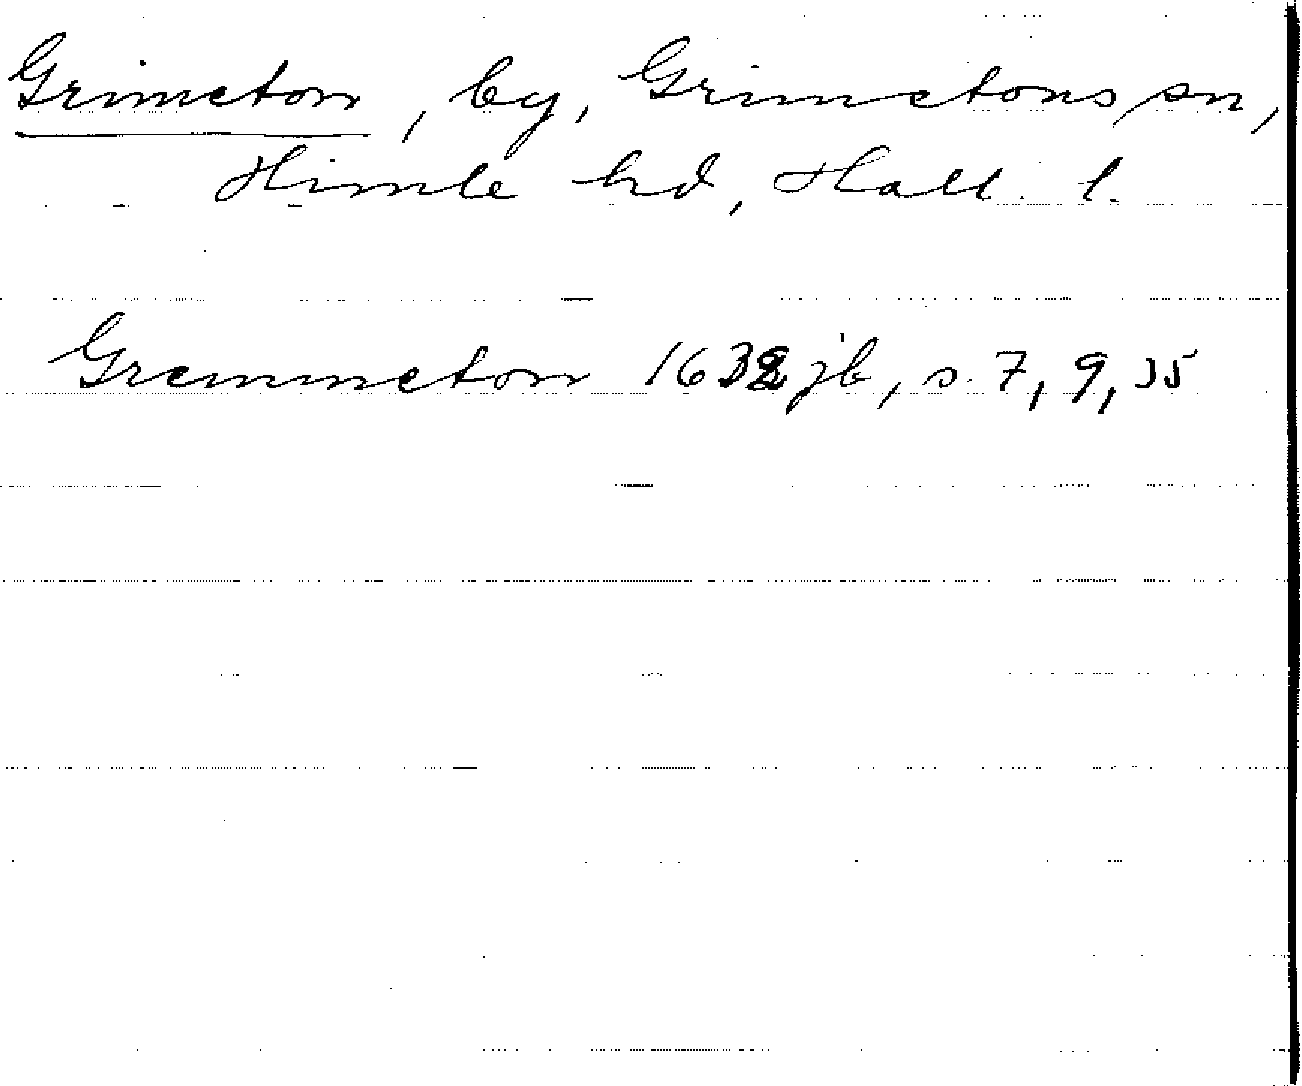 Grimeton, by, Grimetons sn,
Himle hd, Hall. l.
Gremmeton 1632 jb, s. 7, 9, 35